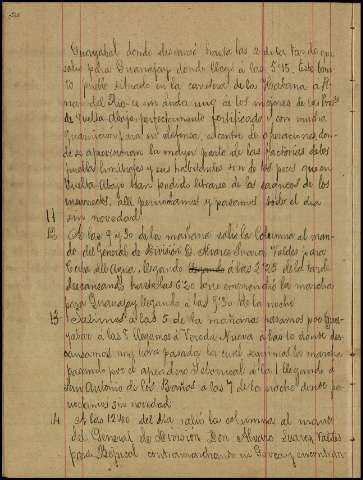 Guayabal donde estuvimos hasta las 2 de la tarde que
salió para Guanajay donde llegó a las 5'15. Este bo
nito pueblo situado en la carretera de la Habana a Pi
nar del Rio es sin duda uno de los mejores de la Prov.ª
de Vuelta Abajo perfectamente fortificado y con mucha
guarnicion para su defensa, el centro de operaciones don
de se aprovisionan la mayor parte de las factorias de los
pueblos limitrofes y sus habitantes son de los pocos que en
Vuelta Abajo han podido librarse de los saqueos de los
insurrectos, alli pernoctamos y pasamos todo el dia
11 sin novedad.
12 A las 9 y 30 de la mañana salió la Columna al man
do del General de Division D. Alvaro Suarez Valdes para
del Agua, llegando a las 2'25 de la tarde
descansando hasta las 6'30 que emprendió la marcha
para Guanajay llegando a las 9'30 de la noche
13 Salimos a las 5 de la mañana pasamos por Gua
yabal a las 7 llegamos a Vereda Nueva a las 10 donde des
cansamos una hora pasada la cual seguimos la marcha
pasando por el apeadero a la 1 llegando a
San Antonio de los Baños a las 7 de la noche donde per
noctamos sin novedad
14 A las 12'40 del dia salió la columna al mando
del General de Division Don Alvaro Suarez Valdes
para contramarchando en y